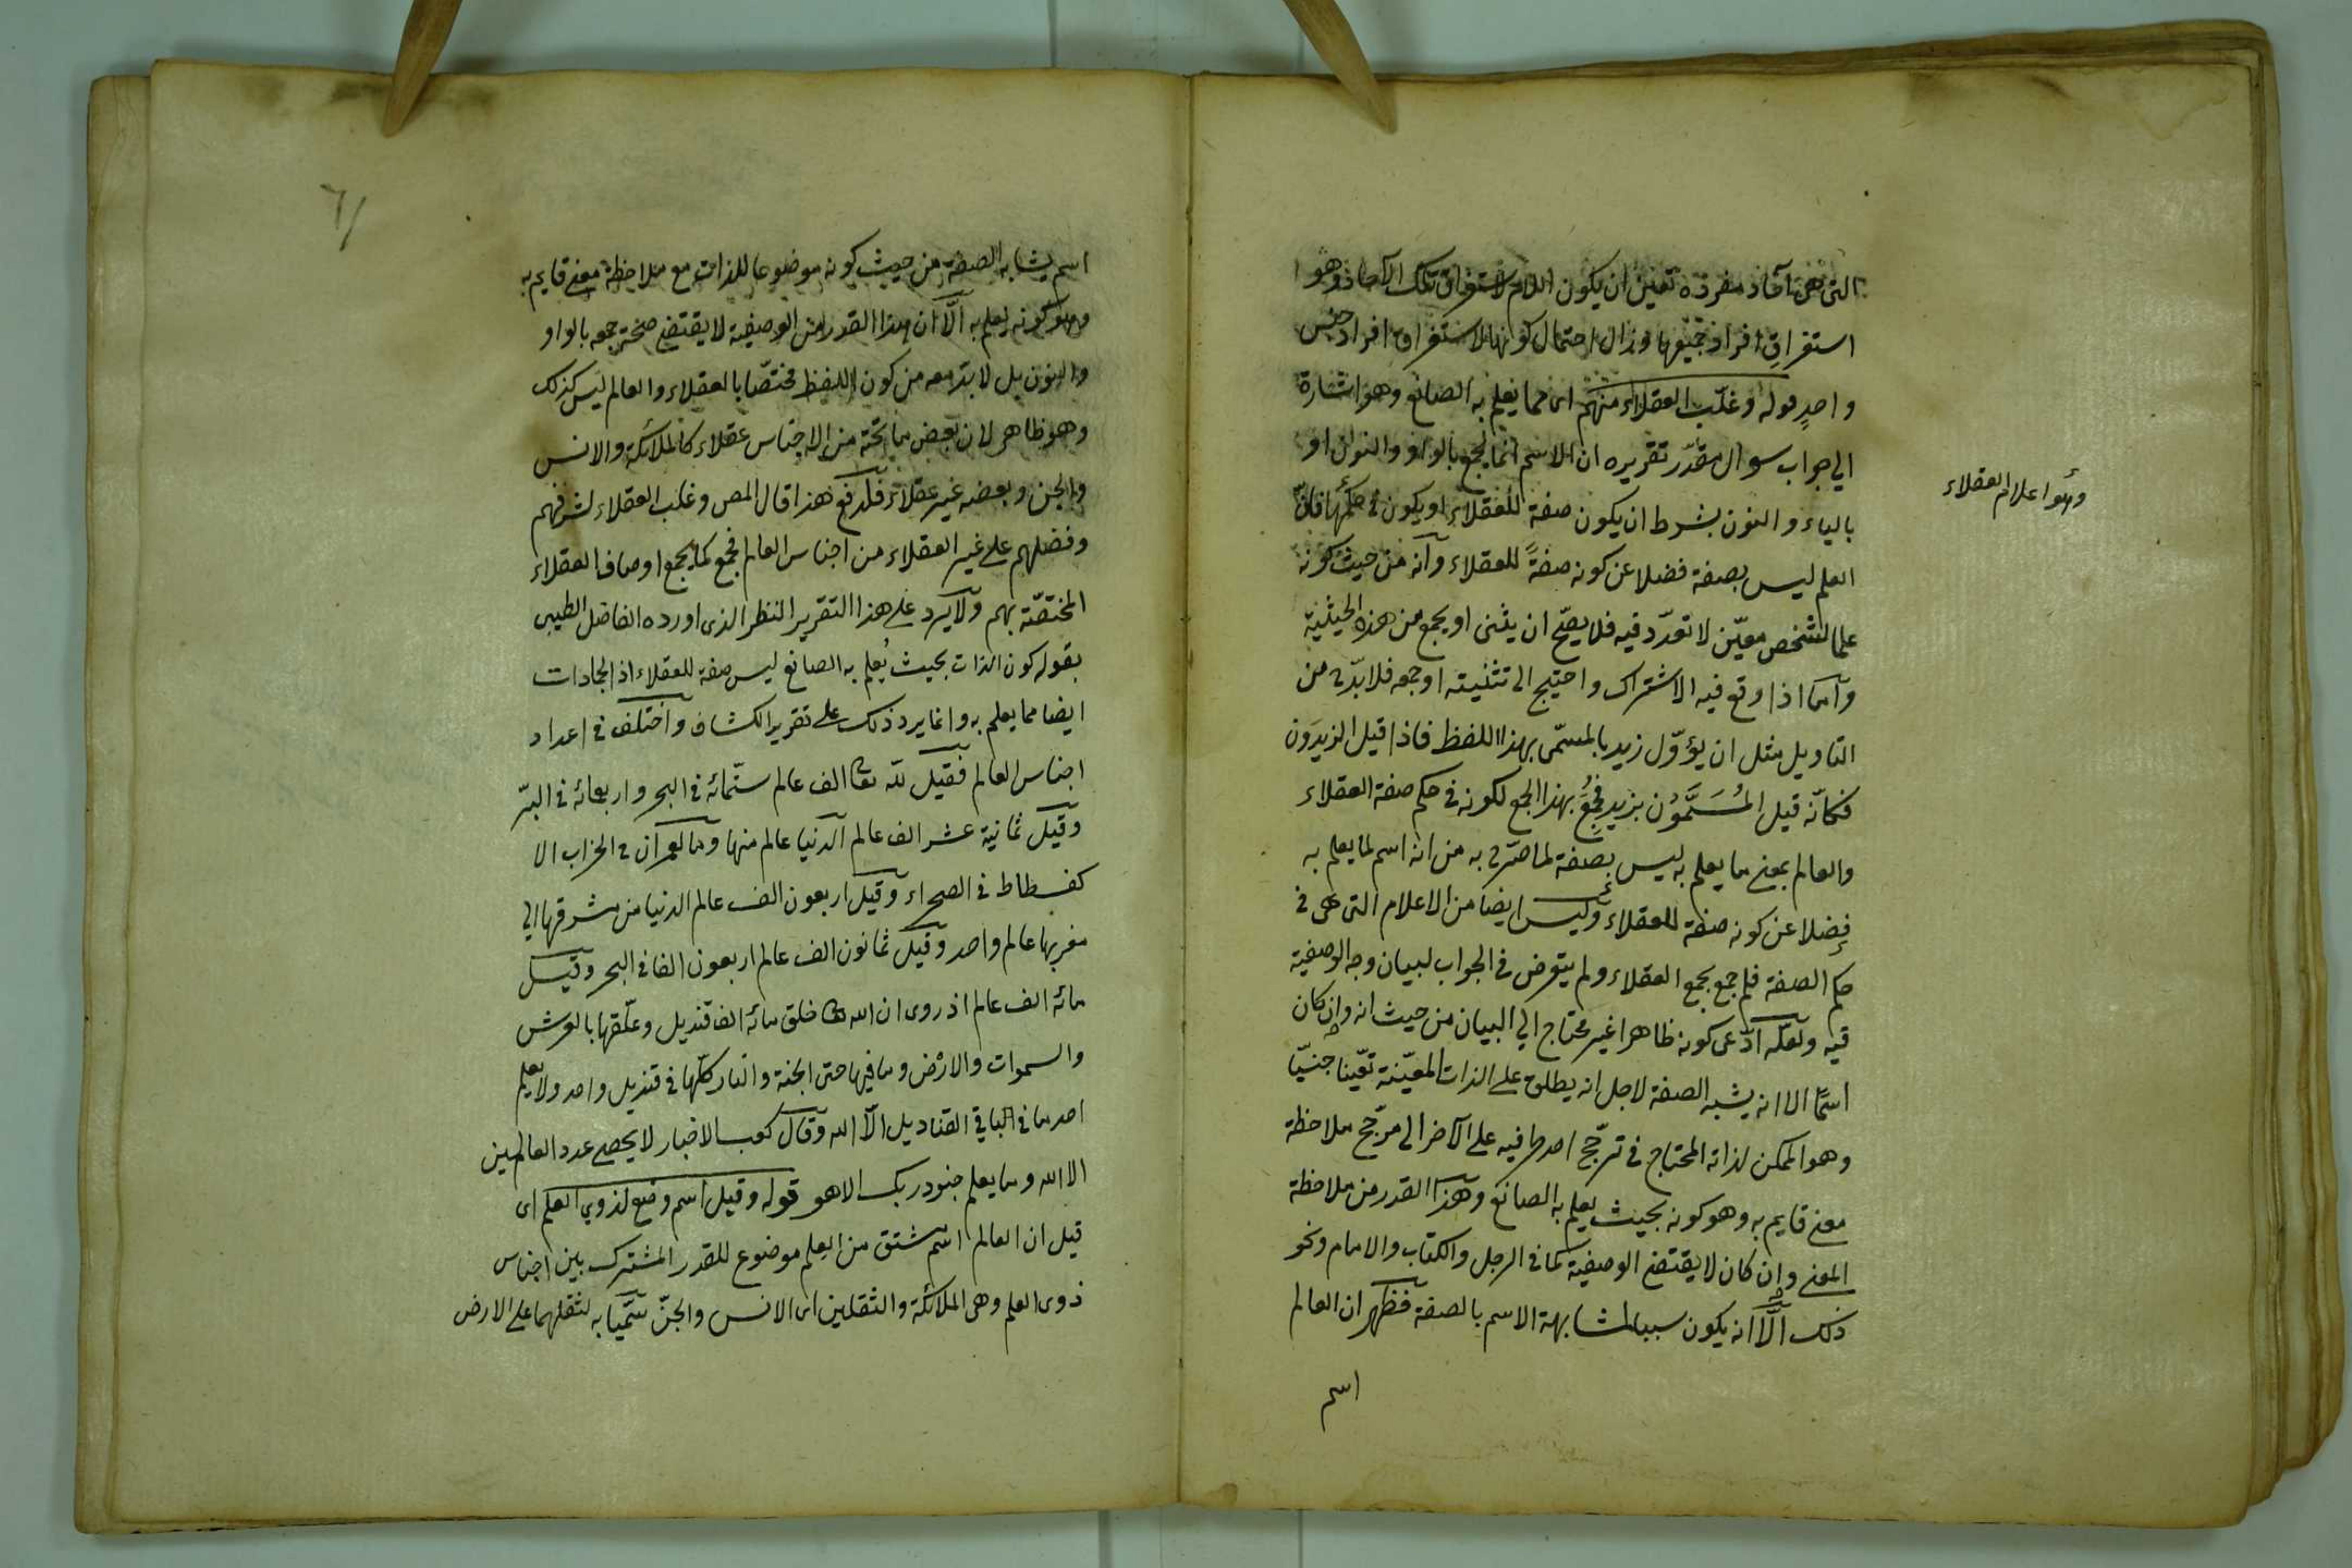 التى هى آحاد مفرده تعين ان يكون اللام لاستغراق تلك الآحاد وهو
استغراق افراد جميعها وزال احتمال كونها لاستغراق افراد جنس
واحدٍ قوله وغلّب العقلاء منهم اى مما يعلم به الصانع وهو اشارة
الي جواب سوال مقدّر تقريره ان الاسم انما يجمع بالواو والنون او
بالياء والنون بشرط ان يكون صفة للعقلاء او يكون في حكمها فانّ
وهو اعلام العقلاء
العلم ليس بصفة فضلا عن كونه صفةً للعقلاء وانّه من حيث كونه
علما لشخص معيّن لا تعدّد فيه فلا يصحّ ان يثنى او يجمع من هذه الحيثية
وامّا اذا وقع فيه الاشتراك واحتيج الى تثنيته او جمعه فلا بدّ من
التاويل مثل ان يؤوّل زيد بالمسمّى بهذا اللفظ فاذا قيل الزيدَون
فكانّه قيل المُسَمَّوْن بزيد فجُمِعَ بهذا الجمع لكونه في حكم صفة العقلاء
والعالم بمعنى ما يعلم به ليس بصفة لما صرّح به من انه اسم لما يعلم به
فضلا عن كونه صفة للعقلاء وليس ايضا من الاعلام التى هى في
حكم الصفة فلم جمع بجمع العقلاء ولم يتعرض في الجواب لبيان وجه الوصفية
فيه ولعلّه ادّعى كونه ظاهرا غير محتاج الي البيان من حيث انه وان كان
اسمًا الا انه يشبه الصفة لاجل انه يطلق على الذات المعيّنة تعيّنا جنسيّا
وهو الممكن لذاته المحتاج في ترجّح احد طرفيه على الآخر الى مرجّح ملاحظة
معنى قايم به وهو كونه بحيث يعلم به الصانع وهذا القدر من ملاحظة
المعنى وان كان لا يقتضى الوصفية كما في الرجل والكتاب والامام ونحو
ذلك الّا انه يكون سببا لمشابهة الاسم بالصفة فظهر ان العالم
اسم
٦١
اسم يشابه الصفة من حيث كونه موضوعا للذات مع ملاحظة معنى قايم به
وهو كونه يعلم به الّا ان هذا القدر من الوصفية لا يقتضى صحّة جمعه بالواو
والنون بل لا بدّ معه من كون اللفظ مختصّا بالعقلاء والعالم ليس كذلك
وهو ظاهر لان بعض ما تحته من الاجناس عقلاء كالملائكة والانس
والجن وبعضه غير عقلاء فلدفع هذا قال المص وغلب العقلاء لشرفهم
وفضلهم على غير العقلاء من اجناس العالم فجمع كما يجمع اوصاف العقلاء
المختصّة بهم ولا يرد على هذا التقرير النظر الذى اورده الفاضل الطيبى
بقوله كون الذات بحيث يُعلم به الصانع ليس صفة للعقلاء اذ الجمادات
ايضا مما يعلم به وانما يرد ذلك على تقرير الكشاف واختلف في اعداد
اجناس العالم فقيل لله تعالى الف عالم ستّمائه في البحر واربعمائه في البرّ
وقيل ثمانية عشر الف عالم الدنيا عالم منها وما العمران في الخراب الا
كفسطاط في الصحراء وقيل اربعون الف عالم الدنيا من مشرقها الي
مغربها عالم واحد وقيل ثمانون الف عالم اربعون الفا في البحر وقيل
مائه الف عالم اذ روى ان الله تعالى خلق مائه الف قنديل وعلّقها بالعرش
والسموات والارض وما فيها حتى الجنة والنار كلّها في قنديل واحد ولا يعلم
احد ما في الباقي القناديل الّا الله وقال كعب الاخبار لا يحصى عدد العالمين
الا الله وما يعلم جنود ربك الا هو قوله وقيل اسم وضع لذوي العلم اى
قيل ان العالم اسم مشتق من العلم موضوع للقدر المشترك بين اجناس
ذوى العلم وهى الملائكة والثقلين اى الانس والجنّ سمّيا به لثقلهما على الارض